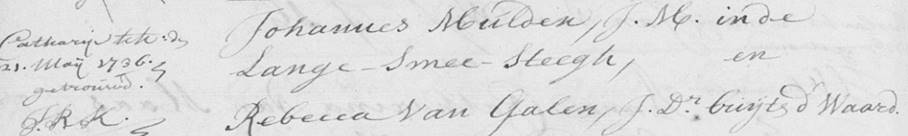 Johannes Mulder, J. M. in de
Catharije kerk d
Lange-Smee-Steegh, en
21. Maÿ 1736.
getrouwd.
Rebecca Van Galen, J. Dr. buÿt d' Waard.
S. R. K.